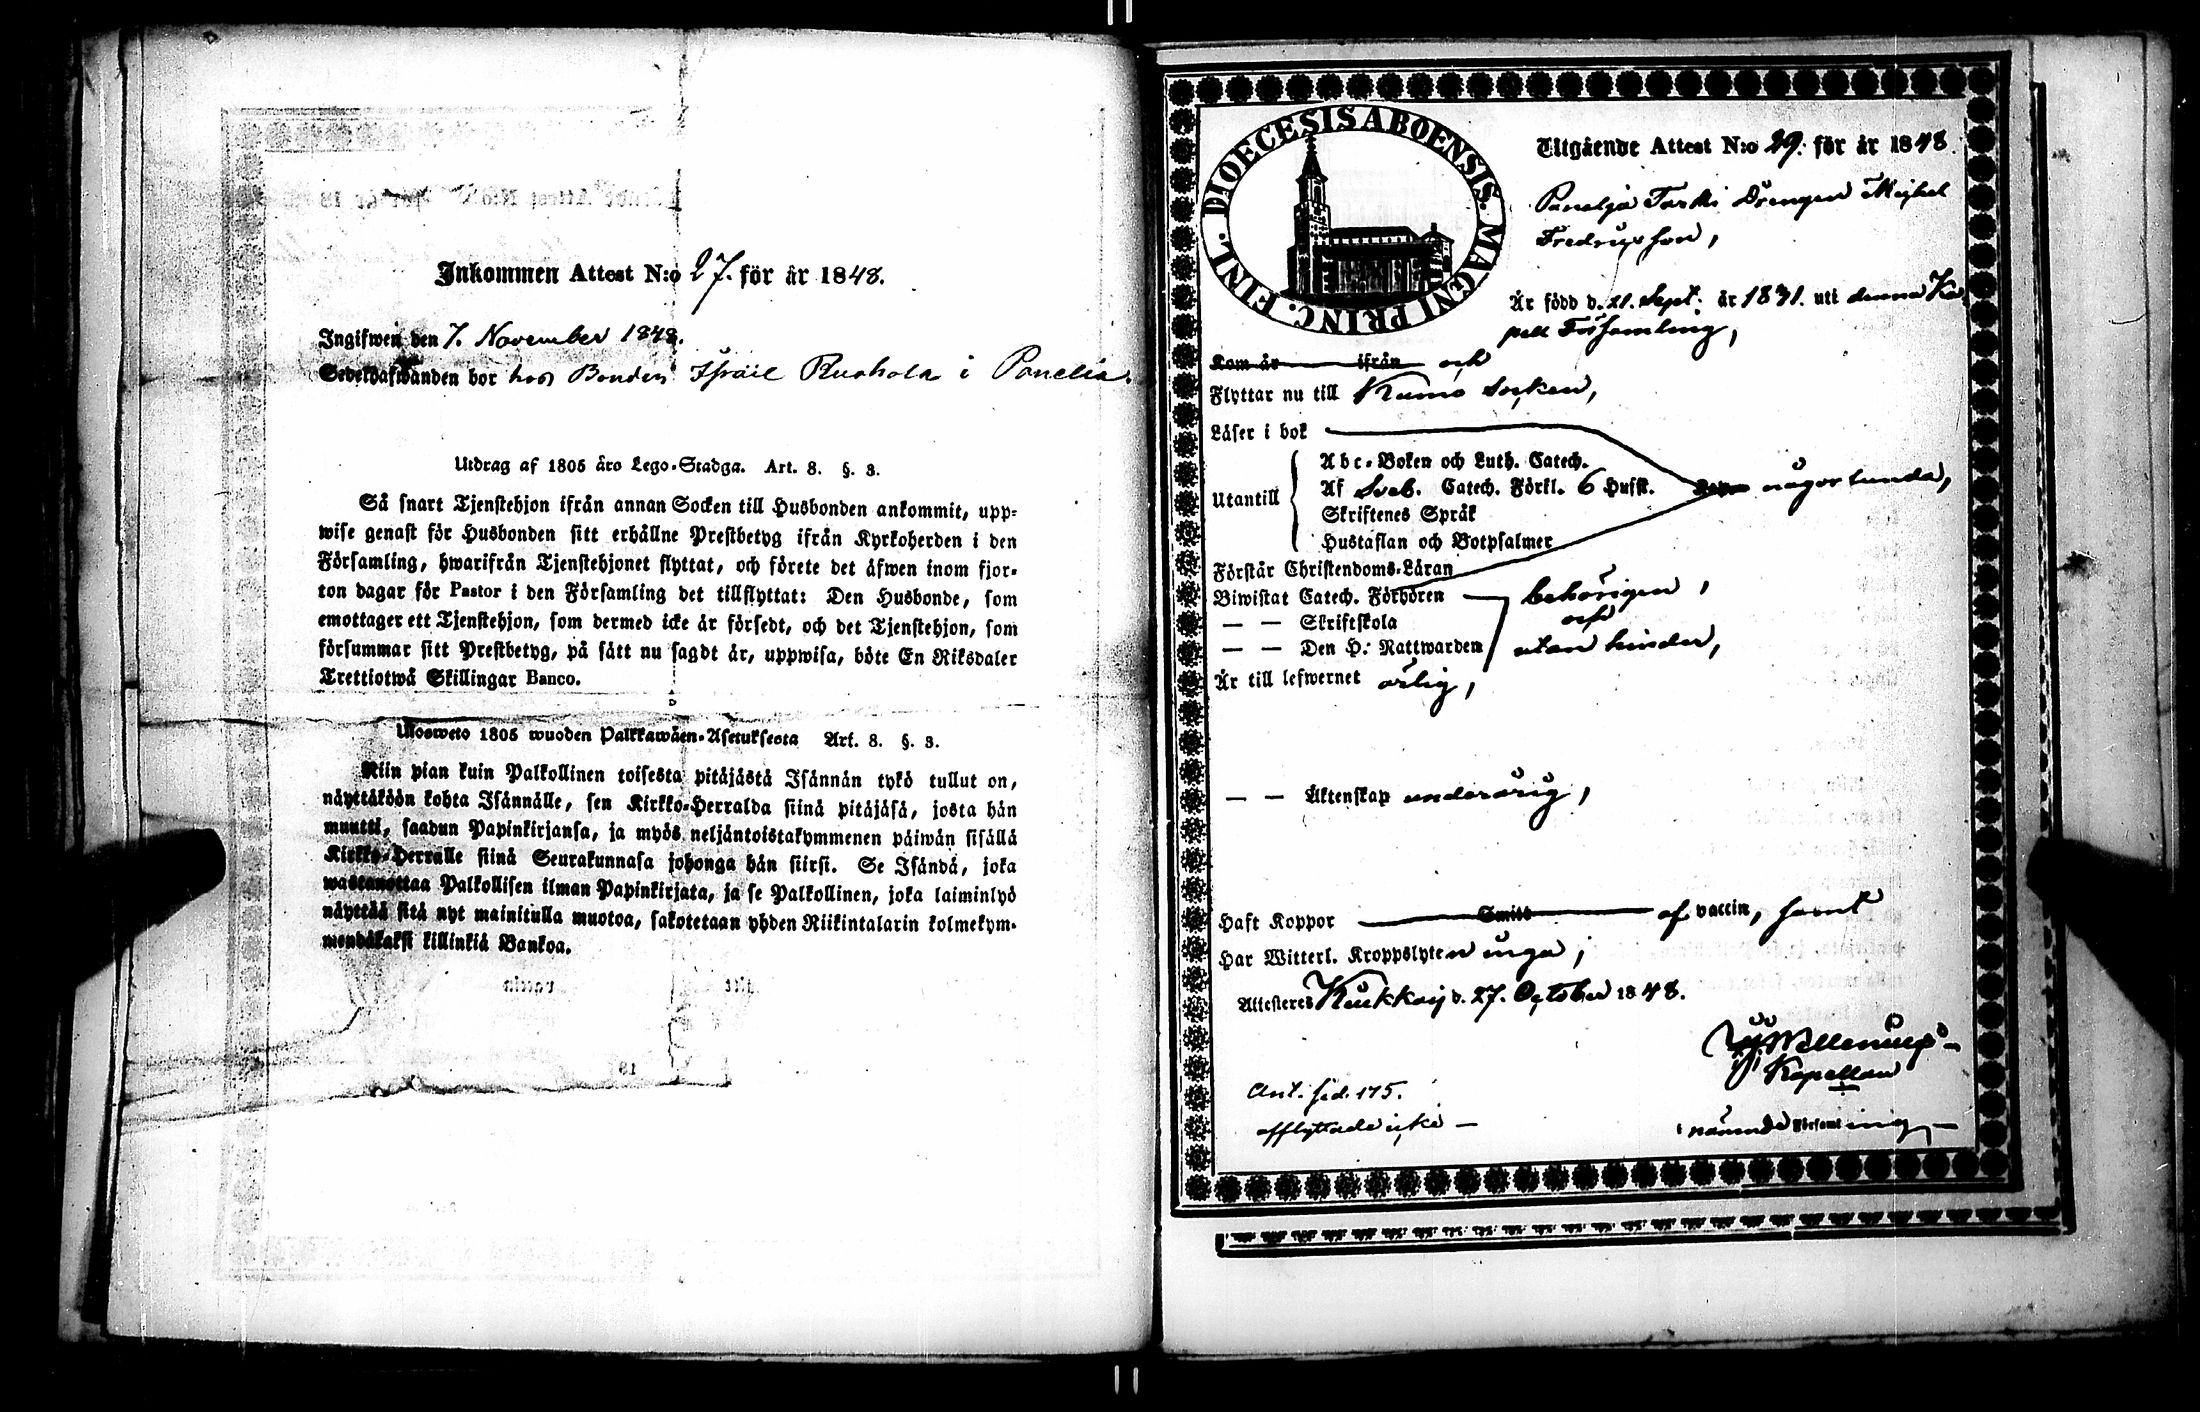 Inkommen Attest N:o 27. för år 1848.
Ingifwen den 7. November 1848.
Sedelhafwanden bor hos Bonden Israel Ruohola i Panelia.
Utdrag af 1805 åro Lego-Stadga. Art. 8. §. 3.
Så snart Tjenstehjon ifrån annan Socken till Husbonden ankommit, upp-
wise genast för Husbonden sitt erhållne Prestbetyg ifrån Kyrkoherden i den
Församling, hwarifrån Tjenstehjonet flyttat, och förete det äfwen inom fjor-
ton dagar för Pastor i den Församling det tillflyttat: Den Husbonde, som
emottager ett Tjenstehjon, som dermed icke är försedt, och det Tjenstehjon, som
försummar sitt Prestbetyg, på sätt nu sagdt är, uppwisa, böte En Riksdaler
Trettiotwå Skillingar Banco.
Ulosweto 1805 wuoden Palkkawäen-Asetuksesta Art. 8. §. 3.
Niin pian kuin Palkollinen toisesta pitäjästä Isännän tykö tullut on,
näyttäköön kohta Isännälle, sen Kirkko-Herralda siinä pitäjäsä, josta hän
muutti, saadun Papinkirjansa, ja myös neljäntoistakymmenen päiwän sisällä
Kirkko-Herralle siinä Seurakunnasa johonga hän siirsi. Se Isändä, joka
wastanottaa Palkollisen ilman Papinkirjata, ja se Palkollinen, joka laiminlyö
näyttää sitä nyt mainitulla muotoa, sakotetaan yhden Riikintalarin kolmekym-
mendäkaksi killinkiä Bankoa.
DIOECESIS ABOENSIS. MAGNI PRINC. FINL.
Utgående Attest N:o 29. för år 1848.
Panelja Tarki Drengen Mickel
Fredrickson,
Är född d. 21. Sept. år 1831. uti denna Ka
pell Församling,
Kom år ifrån och
Flyttar nu till Kumo Socken,
Läser i bok
Abc-Boken och Luth. Catech.
Utantill Af Sveb. Catech. Förkl. 6 Husst. någorlunda,
Skriftenes Språk
Hustaflan och Botpsalmer
Förstår Christendoms-Läran
Biwistat Catech. Förhören behörigen,
— — Skriftskola och
— — Den H. Nattwarden utan hinder,
Är till lefwernet ärlig,
— — Äktenskap underårig,
Haft Koppor Smitt af vaccin, samt
Har Witterl. Kroppslyten inga;
Attesteres Kiukkais d. 27. October 1848.
Kapellan
i nämnde Församling —
Ant. sid. 175.
afflyttade icke —